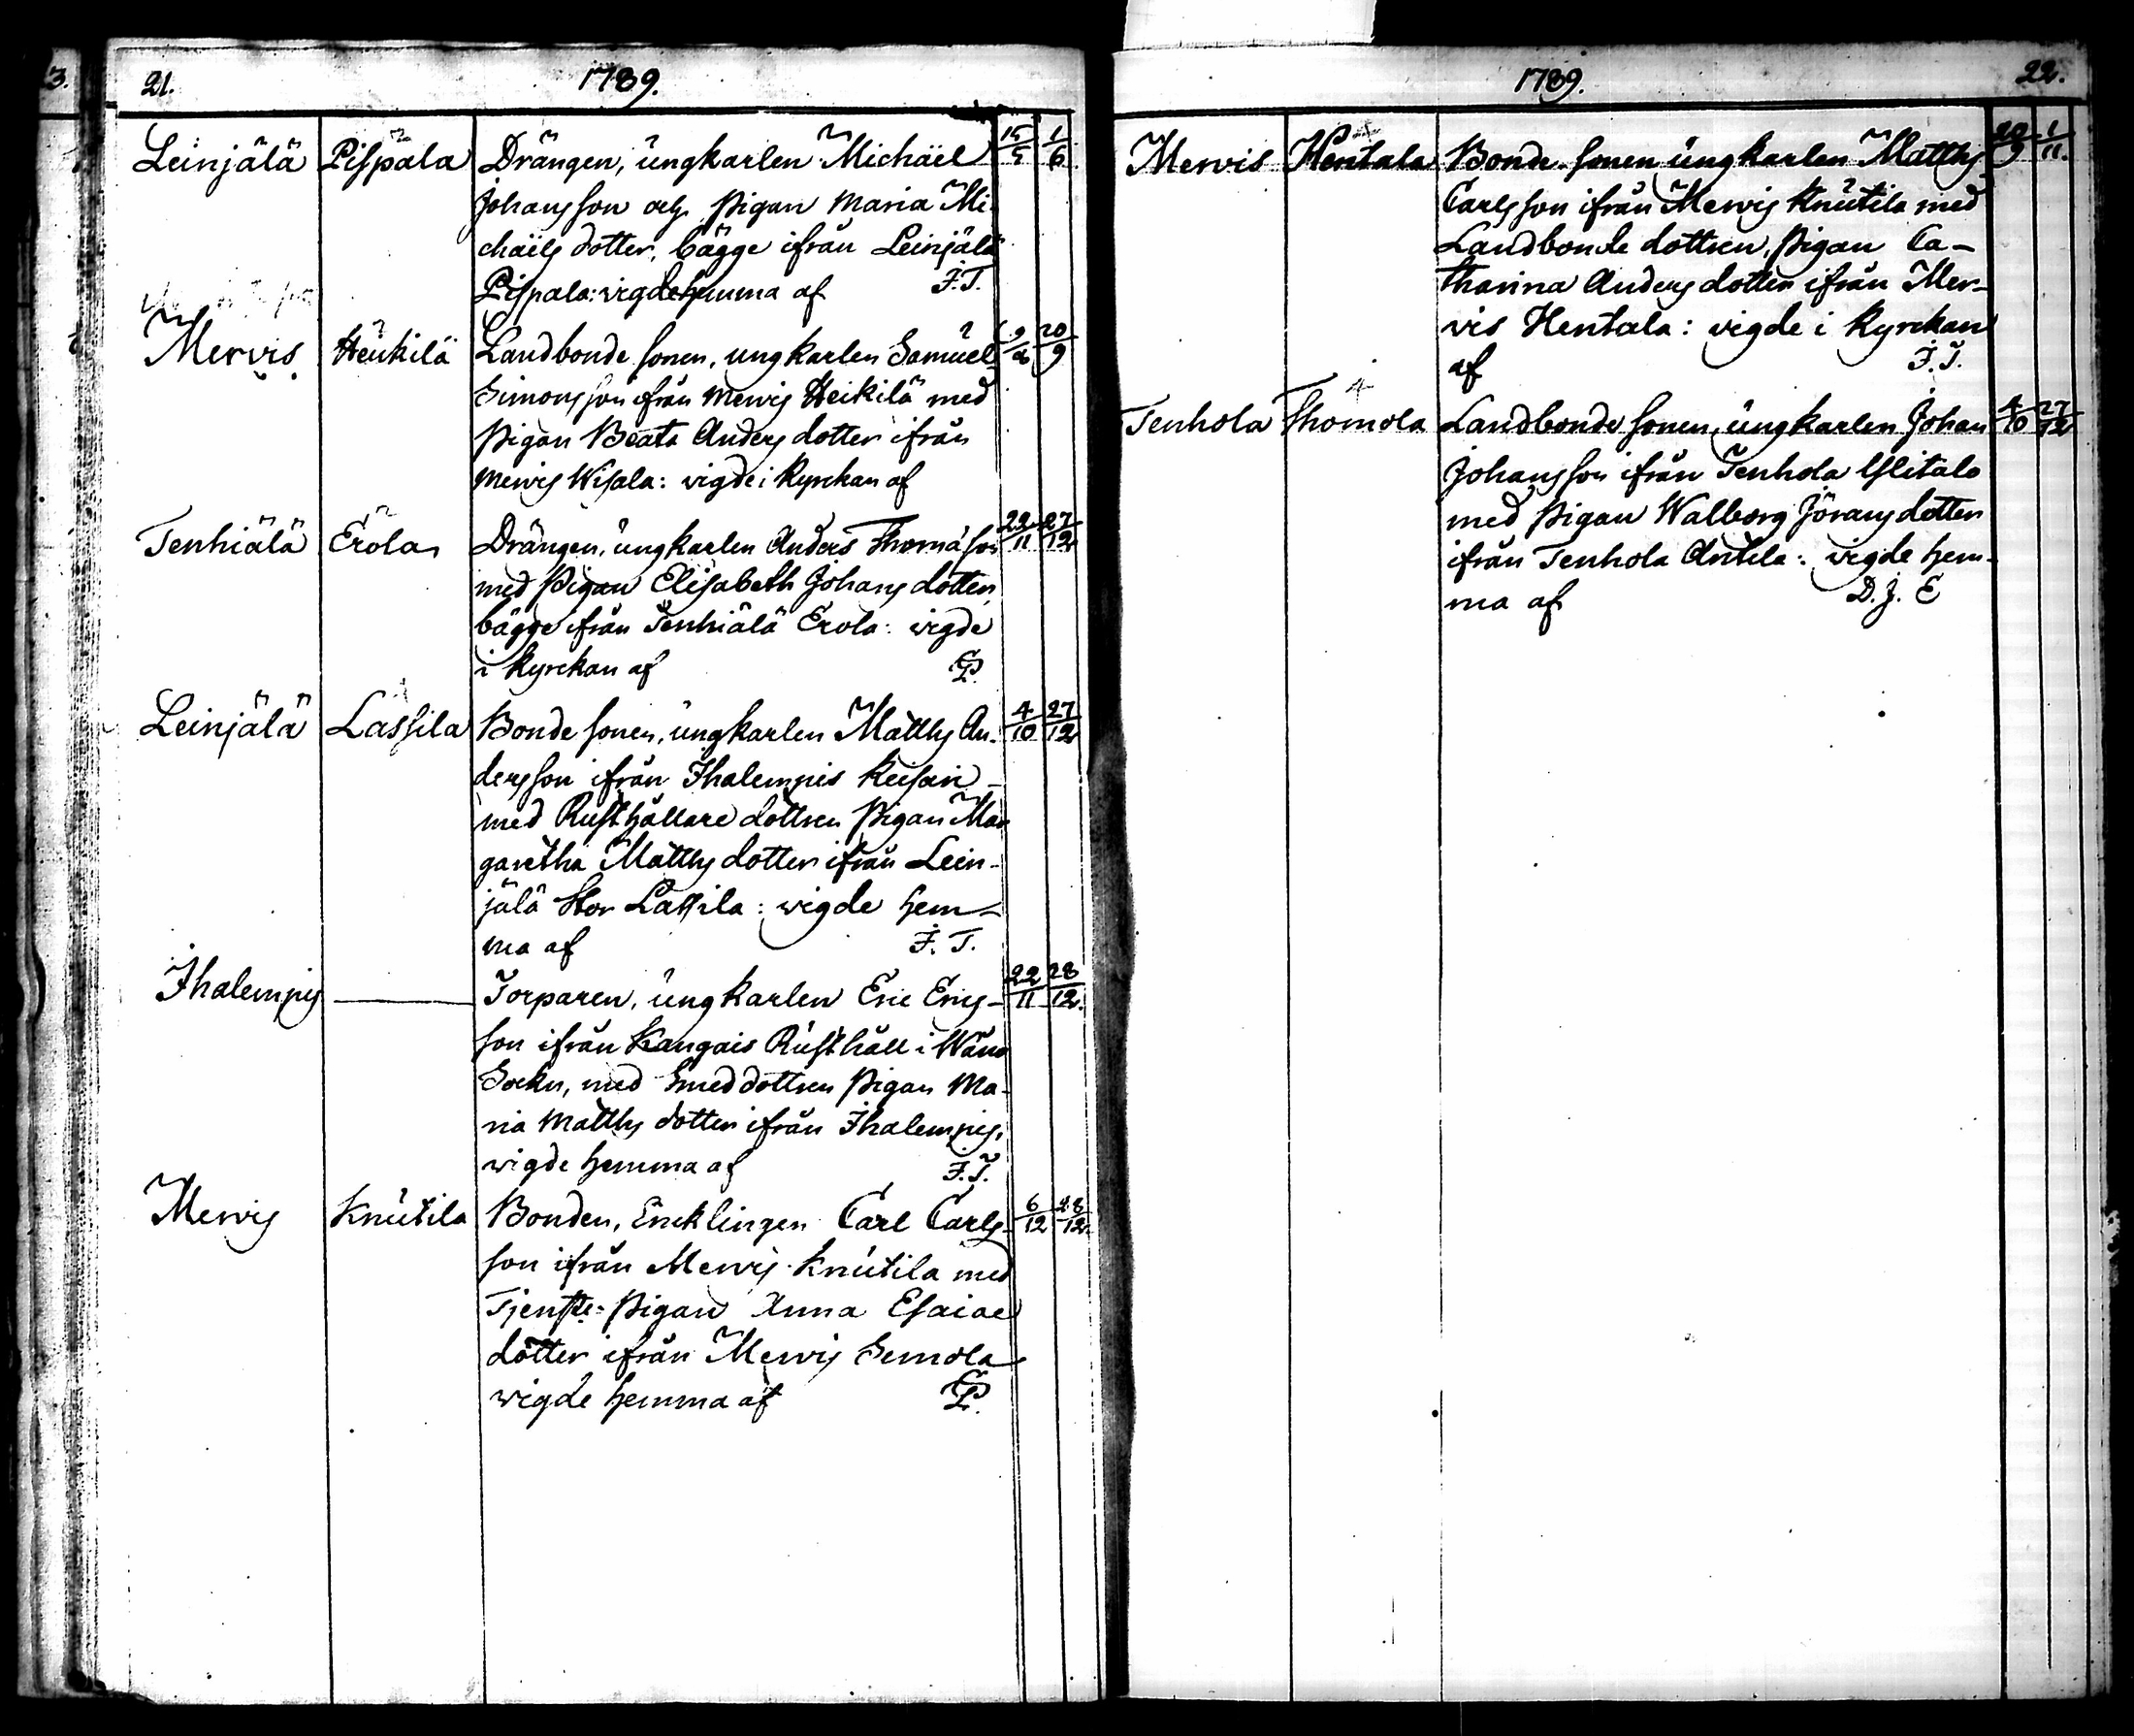 3.
21.
1789.
Leinjälä Pispala Drängen, ungkarlen Michäel 15/5 1/6
Johansson och Pigan Maria Mi-
chaëls dotter, bägge ifrån Leinjälä
Pispala: vigde hemma af F. T.
Mervis Heikilä Landbonde sonen, ungkarlen Samuel 20/9
Simonsson ifrån Mervis Heikilä med
Pigan Beata Anders dotter ifrån
Mervis Wisala: vigde i Kyrckan af
Tenhiälä Erola Drängen, ungkarlen Anders Thomasson 22/11 27/12
med Pigan Elisabeth Johans dotter,
bägge ifrån Tenhiälä Erola: vigde
i Kyrckan af
Leinjälä Lassila Bonde sonen, ungkarlen Matths An- 4/10 27/12
dersson ifrån Ihalempis Keisari
med Rusthållare dottren Pigan Mar
garetha Matths dotter ifrån Lein-
jälä Stor Lassila: vigde hem-
ma af F. T.
Ihalempis — Torparen, ungkarlen Eric Erics- 22/11 28/12
son ifrån Kangais Rusthåll i Wånå
Sockn, med Smed dottren Pigan Ma-
ria Matths dotter ifrån Ihalempis,
vigde hemma af F. T.
Mervis Knutila Bonden, Encklingen Carl Carls- 6/12 28/12
son ifrån Mervis Knutila med
Tjenste-Pigan Anna Esaiae
dotter ifrån Mervis Semola
vigde hemma af
1789.
22.
Mervis Hentala Bonde-sonen ungkarlen Matths 20/9 1/11
Carlsson ifrån Mervis Knutila med
Landbonde dottren, Pigan Ca-
tharina Anders dotter ifrån Mer-
vis Hentala: vigde i Kyrckan
af F. T.
Tenhola Thomola Landbonde sonen, ungkarlen Johan 4/10 27/12
Johansson ifrån Tenhola Ylitalo
med Pigan Walborg Jörans dotter
ifrån Tenhola Antila: vigde hem-
ma af D. J. E